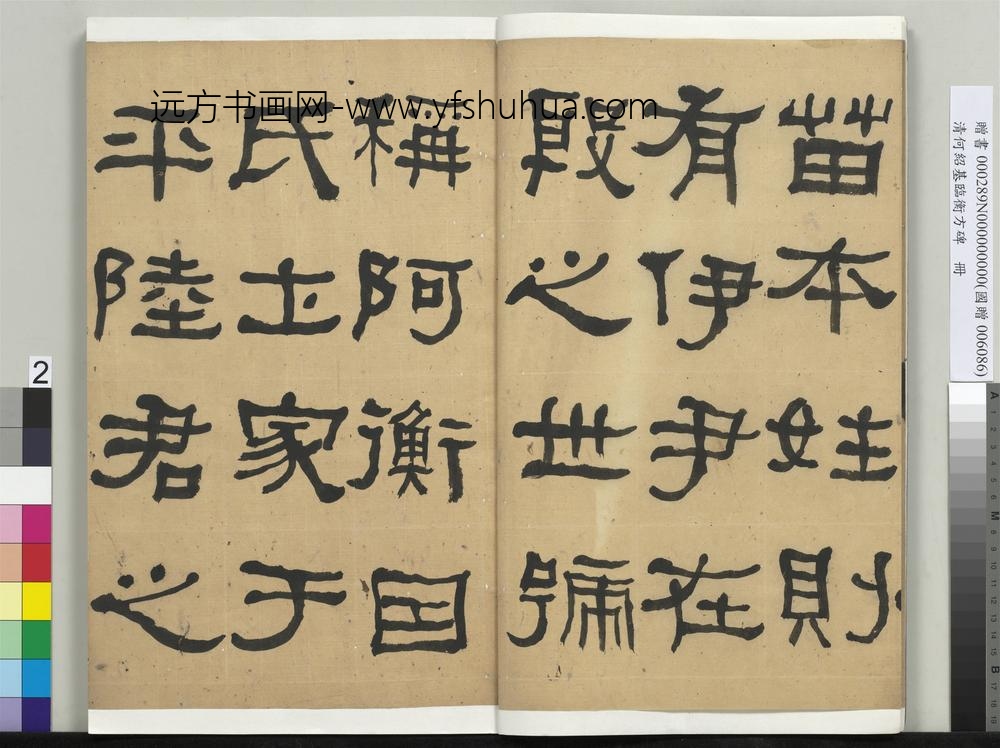 远方书画网-www.yfshuhua.com
苗本姓則
有伊尹在
殷之世號
稱阿衡因
氏土家于
平陸君之
贈書 000289N000000000(國贈 006086)
清何紹基臨衡方碑 冊
2
A 1 2 3 4 5 6 M 8 9 10 11 12 13 14 15 B 17 18 19